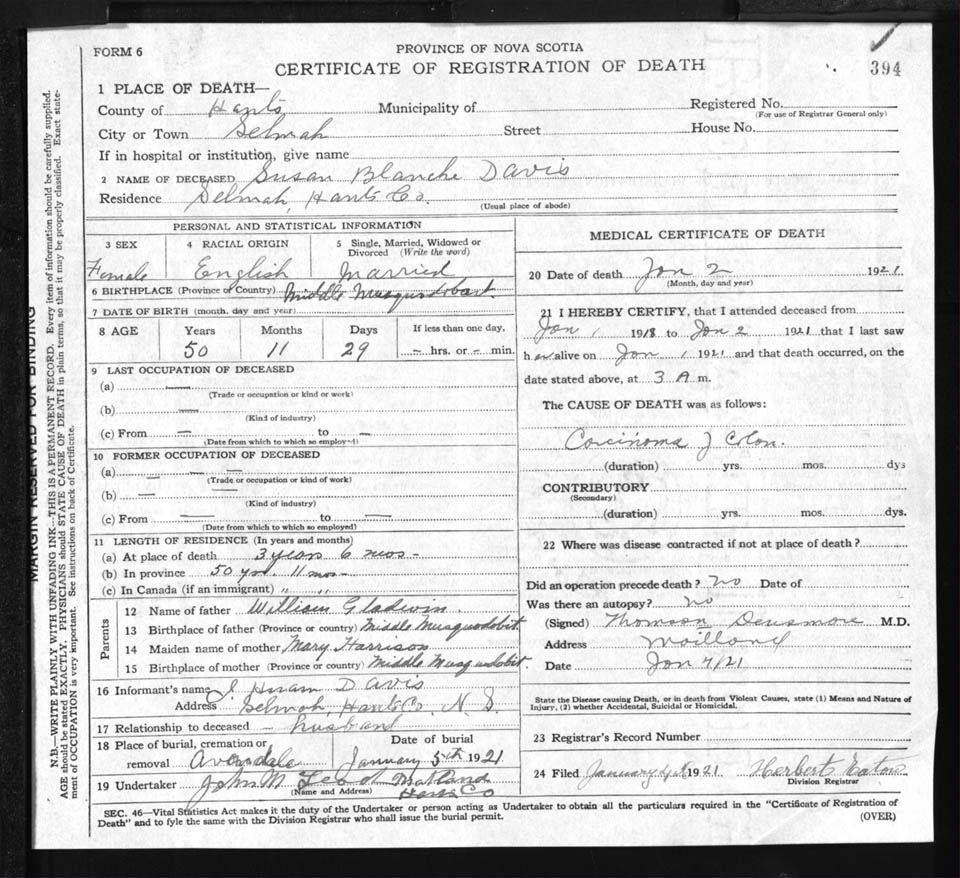 FORM 6
PROVINCE OF NOVA SCOTIA
CERTIFICATE OF REGISTRATION OF DEATH
394
1 PLACE OF DEATH—
County of Hants Municipality of Registered No.
(For use of Registrar General only)
City or Town Selmah Street House No.
If in hospital or institution, give name
2 NAME OF DECEASED Susan Blanche Davis
Residence Selmah, Hants Co.
(Usual place of abode)
PERSONAL AND STATISTICAL INFORMATION
3 SEX 4 RACIAL ORIGIN 5 Single, Married, Widowed or Divorced (Write the word)
Female English Married
6 BIRTHPLACE (Province or Country) Middle Musquodobit
7 DATE OF BIRTH (month, day and year)
8 AGE Years Months Days If less than one day,
50 11 29 — hrs. or — min.
9 LAST OCCUPATION OF DECEASED
(a) —
(Trade or occupation or kind or work)
(b) —
(Kind of industry)
(c) From — to —
(Date from which to which so employed)
10 FORMER OCCUPATION OF DECEASED
(a) — —
(Trade or occupation or kind of work)
(b) — —
(Kind of industry)
(c) From — to —
(Date from which to which so employed)
11 LENGTH OF RESIDENCE (In years and months)
(a) At place of death 3 years 6 mos -
(b) In province 50 yrs. 11 mos -
(c) In Canada (if an immigrant) " "
Parents
12 Name of father William Gladwin.
13 Birthplace of father (Province or country) Middle Musquodobit
14 Maiden name of mother Mary Harrison
15 Birthplace of mother (Province or country) Middle Musquodobit
16 Informant's name J. Hiram Davis
Address Selmah, Hants Co, N. S.
17 Relationship to deceased — husband
18 Place of burial, cremation or removal Avondale
Date of burial
January 5th 1921
19 Undertaker John M Maitland
(Name and Address) Hants Co
MEDICAL CERTIFICATE OF DEATH
20 Date of death Jan 2 1921.
(Month, day and year)
21 I HEREBY CERTIFY, that I attended deceased from
Jan 1 1918 to Jan 2 1921 that I last saw
her alive on Jan 1 1921 and that death occurred, on the
date stated above, at 3 A m.
The CAUSE OF DEATH was as follows:
Carcinoma of Colon.
(duration) yrs. mos. dys
CONTRIBUTORY
(Secondary)
(duration) yrs. mos. dys.
22 Where was disease contracted if not at place of death?
Did an operation precede death? No Date of
Was there an autopsy? No
(Signed) Thomson Densmore M.D.
Address Maitland
Date Jan 4/21
State the Disease causing Death, or in death from Violent Causes, state (1) Means and Nature of
Injury, (2) whether Accidental, Suicidal or Homicidal.
23 Registrar's Record Number
24 Filed January 4th 1921 Herbert Eaton
Division Registrar
SEC. 46—Vital Statistics Act makes it the duty of the Undertaker or person acting as Undertaker to obtain all the particulars required in the "Certificate of Registration of
Death" and to fyle the same with the Division Registrar who shall issue the burial permit.
(OVER)
MARGIN RESERVED FOR BINDING
N.B.—WRITE PLAINLY WITH UNFADING INK—THIS IS A PERMANENT RECORD. Every item of information should be carefully supplied.
AGE should be stated EXACTLY. PHYSICIANS should STATE CAUSE OF DEATH in plain terms, so that it may be properly classified. Exact state-
ment of OCCUPATION is very important. See instructions on back of Certificate.